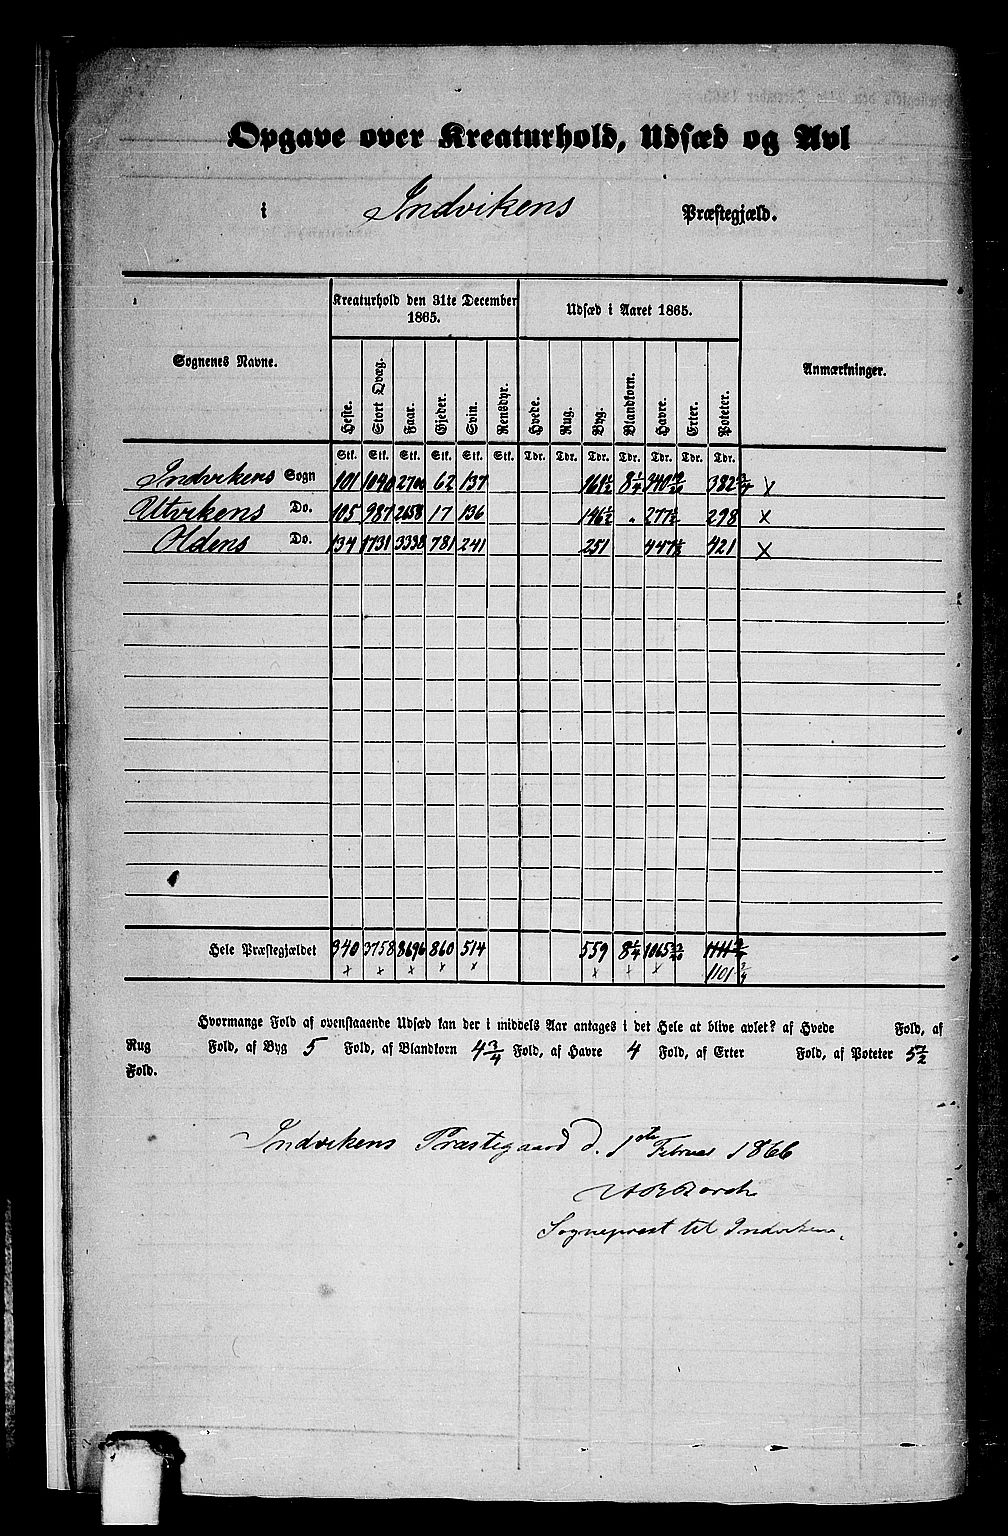 Opgave over Kreaturhold, Udsæd og Avl
i Indvikens Præstegjæld.
Sognenes Navne. Kreaturhold den 31te December 1865. Udsæd i Aaret 1865. Anmærkninger.
Heste. Stort Qvæg. Faar. Gjeder. Svin. Rensdyr. Hvede. Rug. Byg. Blandkorn. Havre. Erter. Poteter.
Stk. Stk. Stk. Stk. Stk. Stk. Tdr. Tdr. Tdr. Tdr. Tdr. Tdr. Tdr.
Indvikens Sogn 101 1040 2700 62 137 161½ 8¼ 382 x
Utvikens Do. 105 987 2658 17 136 146½ „ 277½ 298 x
Oldens Do. 134 1731 3338 781 241 251 447½ 421 x
Hele Præstegjældet 340 3758 8696 860 514 559 8¼ 1065
x x x x x x x x 1101¾
Hvormange Fold af ovenstaaende Udsæd kan der i middels Aar antages i det Hele at blive avlet? af Hvede Fold, af
Rug Fold, af Byg 5 Fold, af Blandkorn 4¾ Fold, af Havre 4 Fold, af Erter Fold, af Poteter 5½
Fold.
Indvikens Præstegaard d. 1ste Februar 1866
Sogneprest til Indviken.